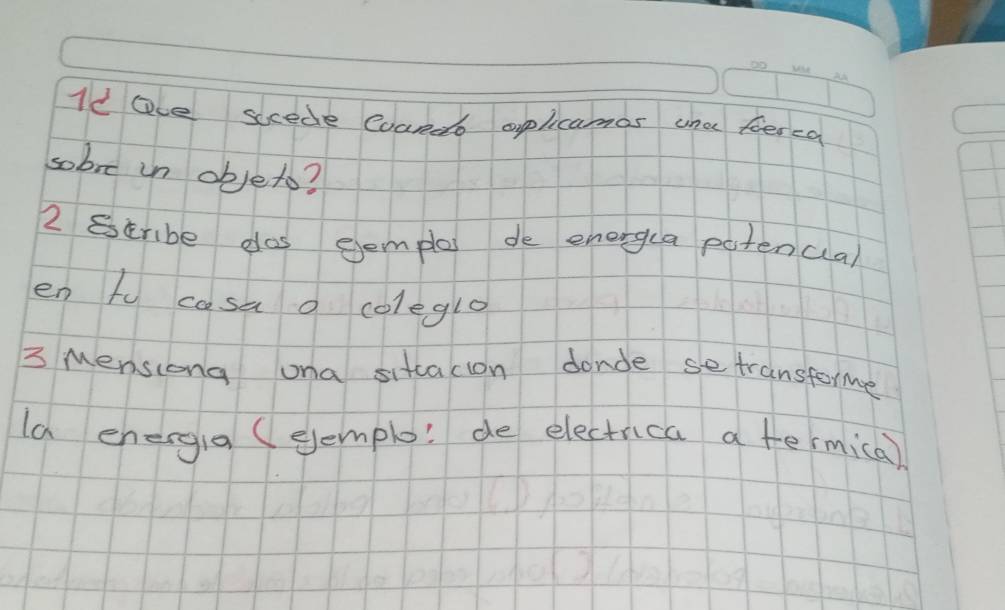 DD MM AA
1¿ Que sucede Cuando aplicamos una fuerza
sobre un objeto?
2 Escribe dos ejemplos de energia potencial
en tu casa o colegio
3 Mensiona una situacion donde se transforme
la energia (ejemplo: de electrica a termica)